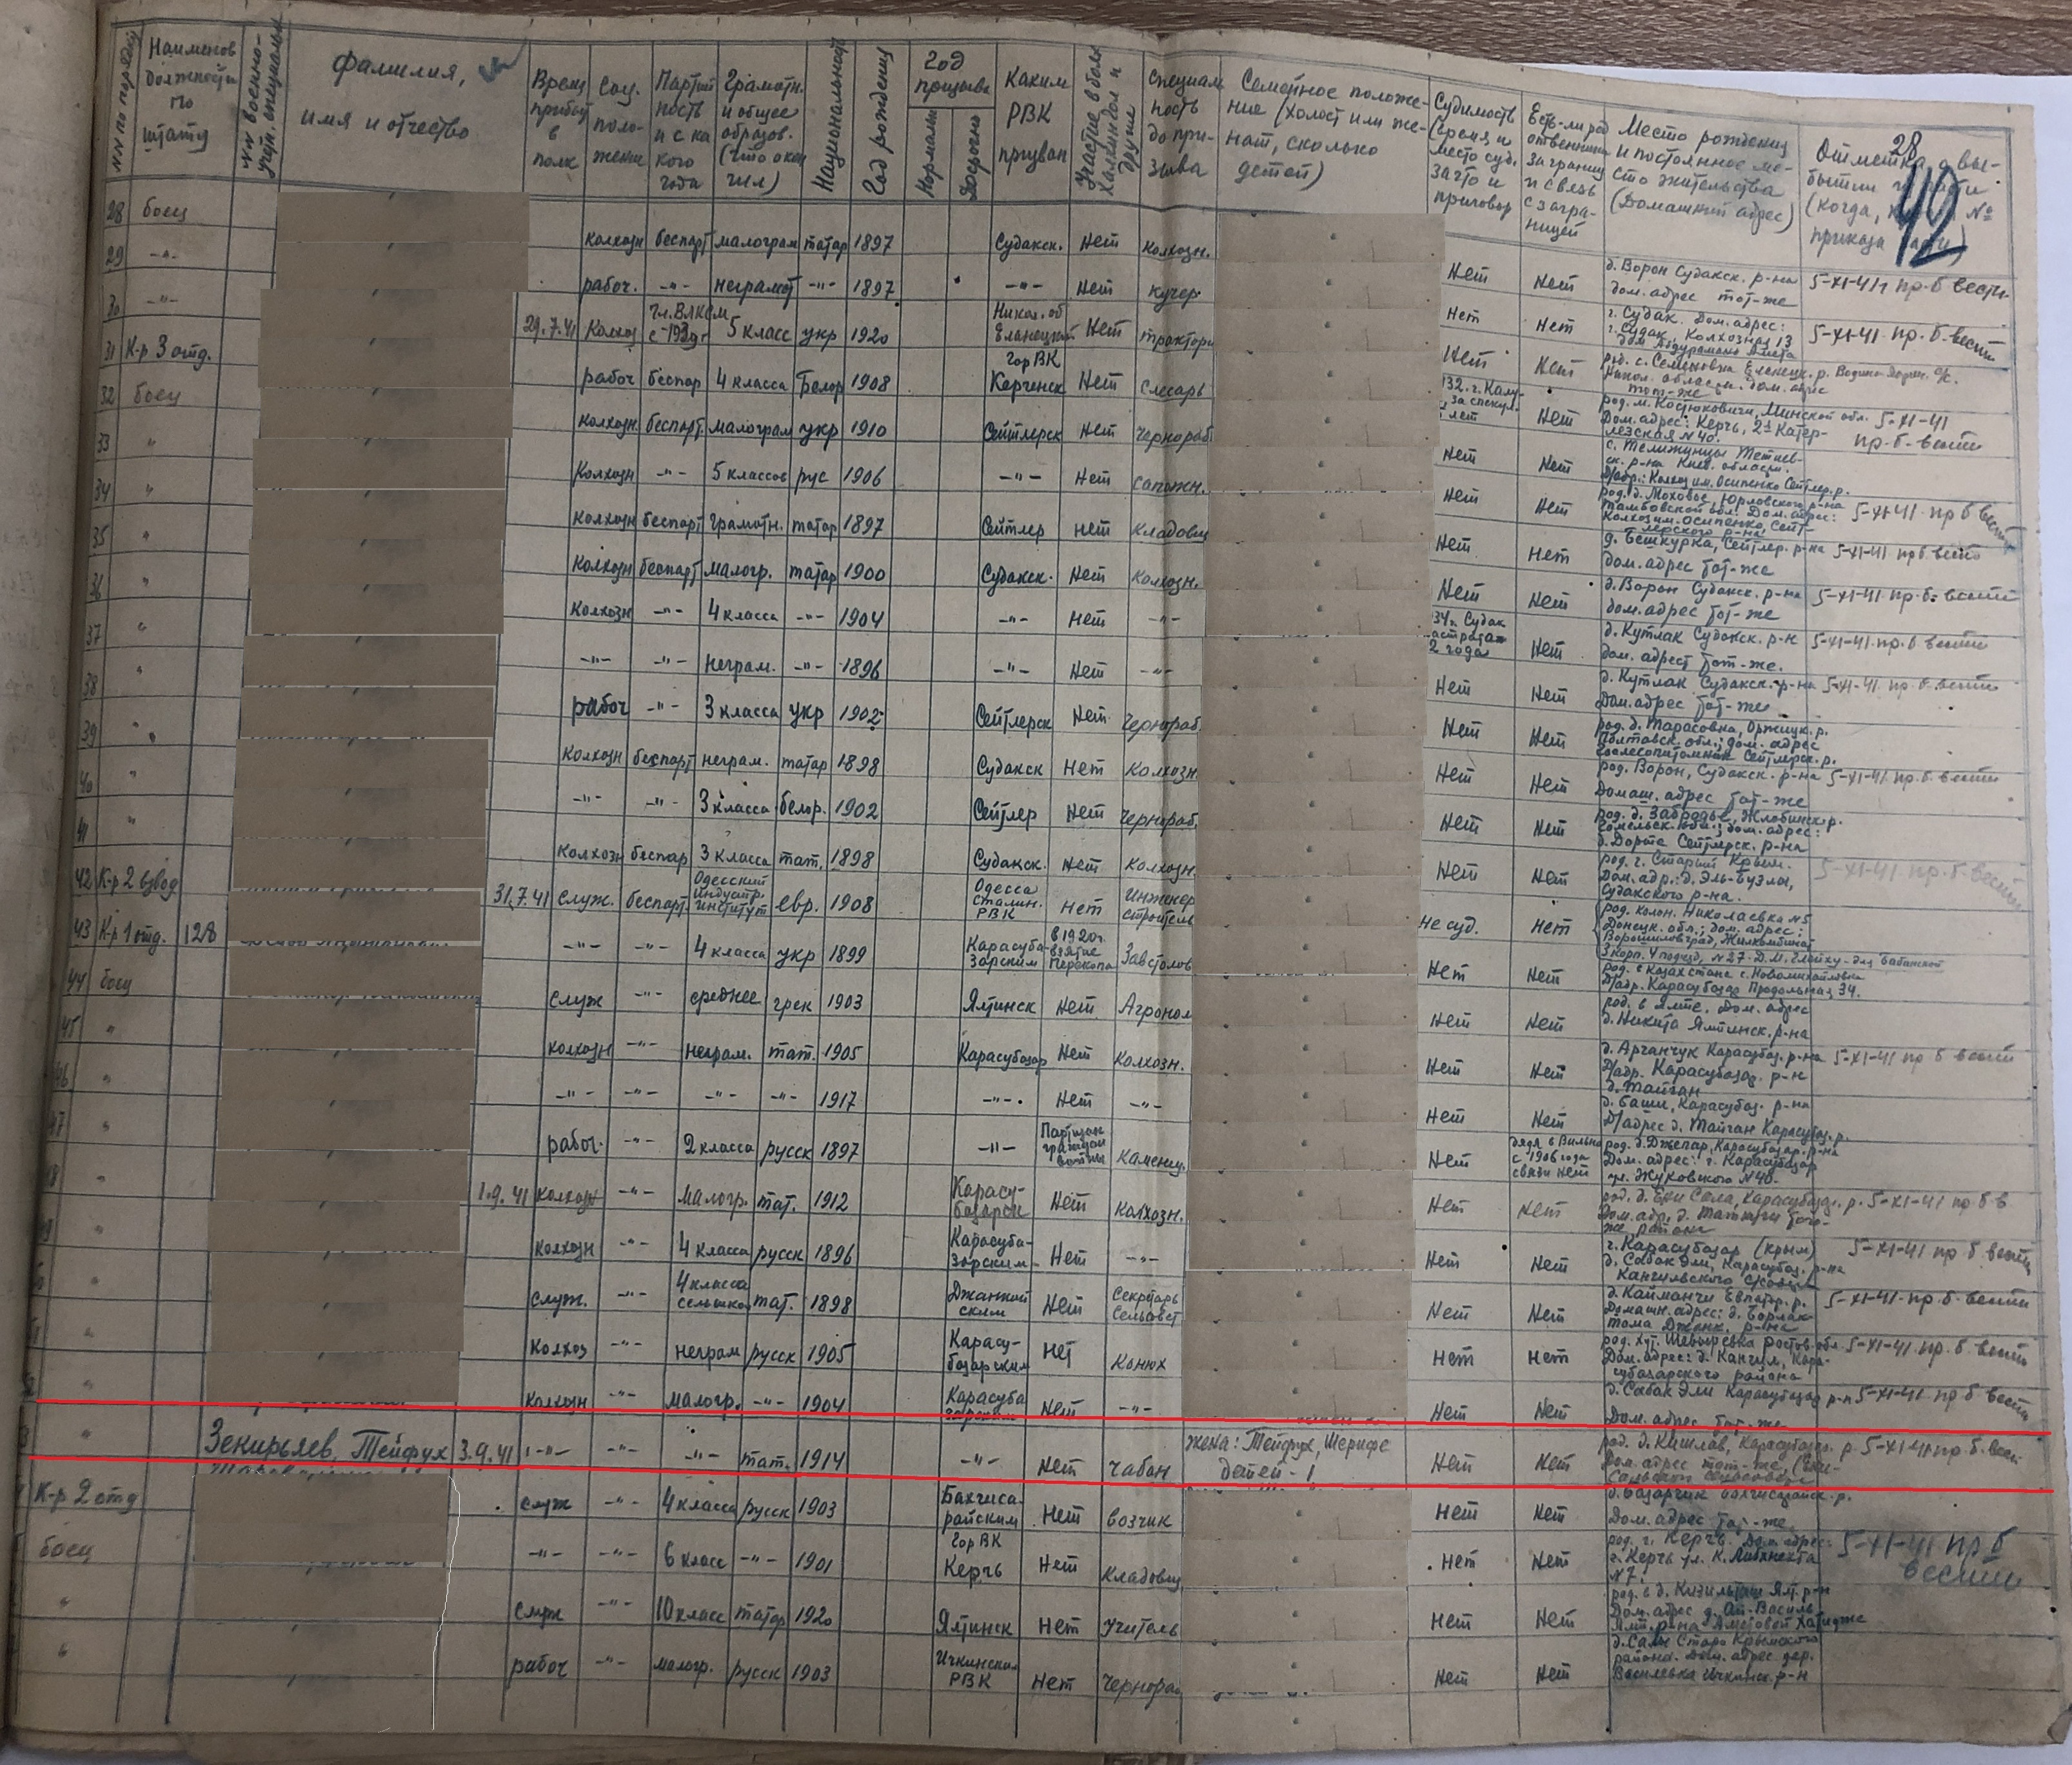 28
42
№№ по порядку
Наименов
должности
по
штату
№№ военно-
учётн. специальн.
Фамилия,
имя и отчество
Время
прибыт
в
полк
Соц.
поло-
жение
Партий
ность
и с ка
кого
года
Грамотн.
и общее
образов.
(что окон
чил)
Национальность
Год рождения
Год
призыва
Нормальн
Досрочно
Каким
РВК
призван
Участие в боях
Халхингол и
другие
Специал
ность
до при-
зыва
Семейное положе-
ние (холост или же-
нат, сколько
детей)
Судимость
(время и
место суд.
за что и
приговор
Есть-ли род
ственники
заграниц
и связь
с загра-
ницей
Место рождения
и постоянное ме-
сто жительства
(Домашний адрес)
Отметка о вы-
бытии из части
(когда, № приказа
28 боец колхозн беспарт малограм татар 1897 Судакск. Нет колхозн. Нет Нет д. Ворон Судакск. р-на
дом. адрес тот-же 5-XI-41г пр. б вести
29 -"- рабоч. -"- неграмот -"- 1897 -"- Нет кучер Нет Нет г. Судак. Дом. адрес:
г. Судак, Колхозная 13
5-XI-41 пр. б. вести
30 -"- 29.7.41 Колхоз чл. ВЛКСМ
с 1939г 5 класс укр 1920 Никол. об
Еланецким Нет тракторис Нет Нет род. с. Семеновка Еланецк. р.
Никол. област. дом. адрес
тот-же
31 К-р 3 отд. рабоч беспар 4 класса Белор 1908 Гор ВК
Керченск Нет слесарь Нет род. м. Костюковичи, Минской обл. 5-XI-41
Дом. адрес: Керчь, 2я Катер-
лезская №40. пр. б. вести
32 боец колхозн беспарт. малограм укр 1910 Сейтлерск Нет чернораб Нет Нет
33 " Колхозн -"- 5 классов рус 1906 -"- Нет сапожн. Нет Нет род. д. Моховое, Юрловского р-на
Тамбовской обл. Дом. адрес:
Колхоз им. Осипенко, Сейт-
лерского р-на 5-XI-41 пр б вести
34 " колхозн беспарт грамотн. татар 1897 Сейтлер нет кладовщ Нет Нет д. Бешкурка, Сейтлер. р-на 5-XI-41 пр б. вести
дом. адрес тот-же
35 " Колхозн беспарт малогр. татар 1900 Судакск. Нет Колхозн. Нет Нет д. Ворон Судакск. р-на 5-XI-41 пр. б. вести
дом. адрес тот-же
36 " колхозн -"- 4 класса -"- 1904 -"- Нет -"- 34г. Судак
растрата
2 года Нет д. Кутлак Судакск. р-н 5-XI-41 пр. б вести
дом. адрест тот-же.
37 " -"- -"- неграм. -"- 1896 -"- Нет -"- Нет Нет д. Кутлак Судакск. р-на 5-XI-41 пр. б. вести
Дом. адрес тот-же
38 " рабоч -"- 3 класса укр 1902 Сейтлерск Нет чернораб. Нет Нет род. д. Тарасовка, Оржицк. р.
Полтавск. обл.; дом. адрес
39 " Колхозн беспарт неграм. татар 1898 Судакск Нет Колхозн. Нет Нет род. Ворон, Судакск. р-на 5-XI-41 пр. б. вести
Домаш. адрес тот-же
40 " -"- -"- 3 класса белор. 1902 Сейтлер Нет чернораб. Нет Нет род. д. Забродье, Жлобинск. р.
Гомельск. обл.; дом. адрес:
д. Дорте Сейтлерск. р-на
41 " колхозн беспар 3 класса тат. 1898 Судакск. Нет колхозн. Нет Нет род. г. Старый Крым. 5-XI-41. пр. б. вести
Дом. адр.: д. Эль-Бузлы,
Судакского р-на.
42 К-р 2 взвод 31.7.41 служ. беспарт. Одесский
индустр.
институт евр. 1908 Одесса
Сталин.
РВК Нет Инженер
строитель не суд. Нет род. колон. Николаевка №5
Донецк. обл.; дом. адрес:
Ворошиловград, Жилкомбинат
43 К-р 1 отд. 128 -"- -"- 4 класса укр 1899 Карасуба-
зарским в 1920г.
взятие
Перекопа Завстолов Нет Нет род. с Казахстане с. Новомихайловка
Д/адр. Карасубазар Продольная 34.
44 боец служ -"- среднее грек 1903 Ялтинск Нет Агроном Нет Нет род. в Ялте. Дом. адрес
д. Никита Ялтинск. р-на
45 " колхозн -"- неграм. тат. 1905 Карасубазар Нет Колхозн. Нет Нет д. Арганчук Карасубаз. р-на 5-XI-41 пр б вести
Д/адр. Карасубазар. р-н
д. Тайган
46 " -"- -"- -"- -"- 1917 -"- Нет -"- Нет Нет д. Баши, Карасубаз. р-на
Д/адрес д. Тайган Карасубаз. р.
47 " рабоч. -"- 2 класса русск 1897 -"- Партизан
граждан
войны каменщ. Нет дядя в Вильно
с 1906 года
связи нет род. д. Джепар, Карасубазар. р-на
Дом. адрес: г. Карасубазар
ул. Жуковского №40.
48 " 1.9.41 колхозн -"- малогр. тат. 1912 Карасу-
базарск Нет колхозн. Нет Нет род. д. Ени Сала, Карасубазар. р. 5-XI-41 пр б в
49 " колхозн -"- 4 класса русск 1896 Карасуба-
зарским Нет -"- Нет Нет г. Карасубазар (Крым) 5-XI-41 пр б вести
д. Сабак Эли, Карасубаз. р-на
50 " служ. -"- 4 класса
тат. 1898 Джанкой
ским Нет Секретарь
Сельсовет Нет Нет д. Кайманчи Евпатор. р. 5-XI-41. пр. б. вести
Домашн. адрес: д. Борлак-
тома Джанк. р-на
" колхоз -"- неграм русск 1905 Карасу-
базарским нет конюх Нет Нет род. хут. Шевыревка Ростов обл 5-XI-41 пр. б. вести
Дом. адрес: д. Кангил, Кара-
субазарского района
" колхозн -"- малогр. -"- 1904 Карасуба
зарским Нет -"- Нет Нет д. Сабак Эли Карасубазар р-н 5-XI-41 пр б вести
Дом. адрес тот-же
" Зекирьяев, Тейфух 3.9.41 -"- -"- -"- тат. 1914 -"- Нет чабан жена: Тейфух, Шерифе
детей - 1 Нет Нет род. д. Кишлав, Карасубазар. р. 5-XI-41 пр. б. вест
Дом. адрес тот-же
К-р 2 отд служ -"- 4 класса русск 1903 Бахчиса-
райским Нет возчик Нет Нет д. Базарчик Бахчисарайск. р.
Дом. адрес тот-же.
боец -"- -"- 6 класс -"- 1901 Гор ВК
Керчь Нет кладовщ. Нет Нет род. г. Керчь. Дом. адрес:
г. Керчь ул. К. Либкнехта
№7. 5-XI-41 пр б
вести
" служ -"- 10 класс татар 1920 Ялтинск Нет учитель Нет Нет род. в д. Кизильташ Ял. р-н
Дом. адрес д. Ай-Василь
Ялт. р-на Аметовой Хатидже
" рабоч -"- малогр. русск 1903 Ичкинским
РВК Нет Чернораб Нет Нет д. Салы Старо Крымского
района. Дом. адрес дер.
Василевка Ичкинск. р-н